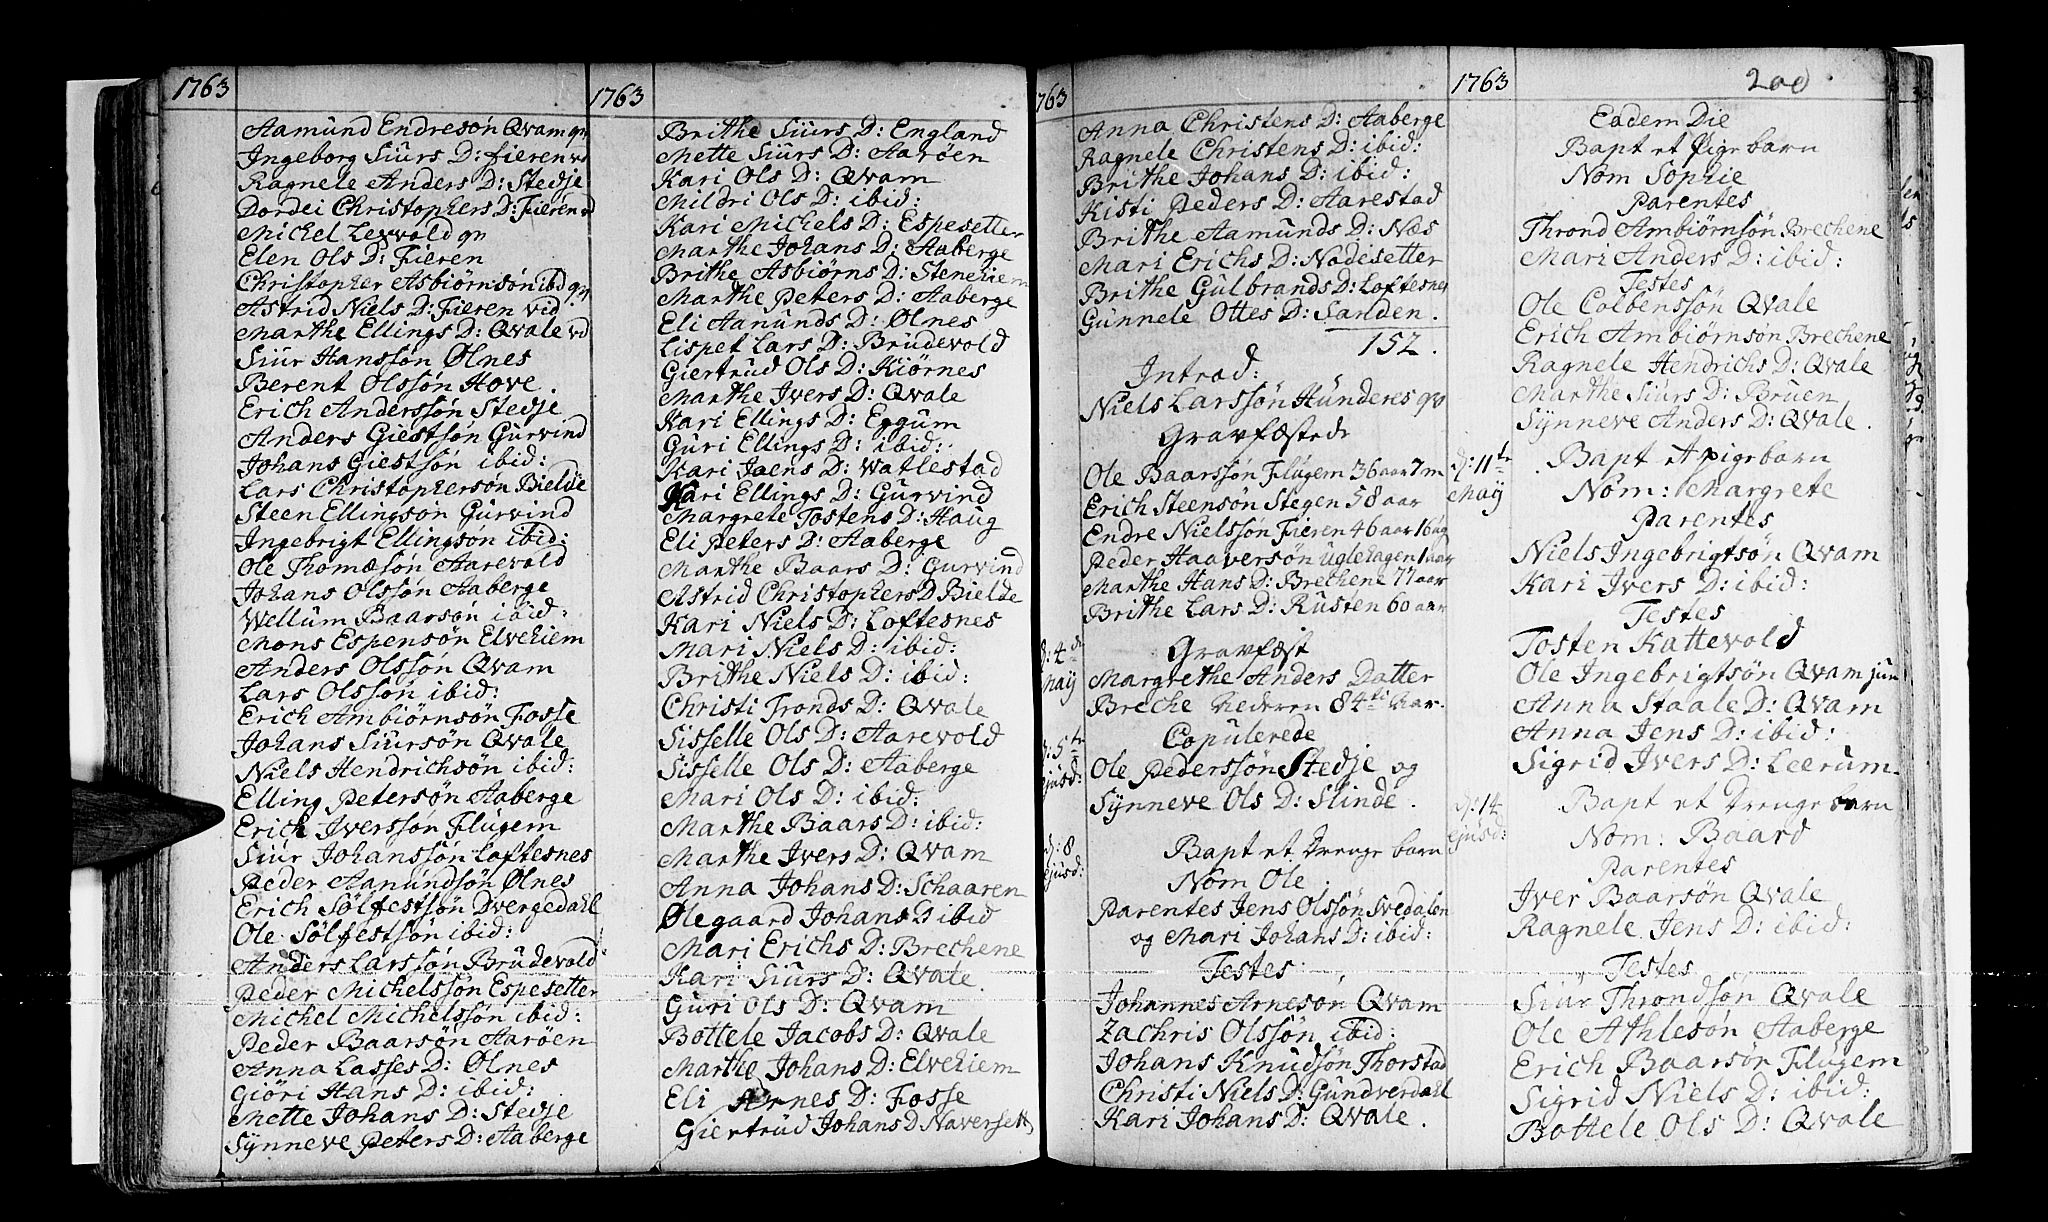 1763
Aamund Endresøn Qvam qv
Ingeborg Siurs D: Fieren vd
Ragnele Anders D: Stedje
Dordei Christophers D: Fieren vd
Michel Lexvold qv
Elen Ols D: Fieren
Christopher Asbiørnsøn ibd qv
Astrid Niels D: Fieren vid
Marthe Ellings D: Qvale vd
Siur Hanssøn Ølnes
Berent Olssøn Hove.
Erich Anderssøn Stedje
Anders Giestsøn Gurvind
Johans Giestsøn ibid:
Lars Christophersøn Bielde
Steen Ellingson Gurvind
Ingebrigt Ellingson ibid:
Ole Thomæsøn Aarevold
Johans Olssøn Aaberge
Wellum Baarsøn ibid:
Mons Espensøn Elvehiem
Anders Olssøn Qvam
Lars Olssøn ibid:
Erich Ambiørnsøn Fosse
Johans Siursøn Qvale
Niels Hendrichsøn ibid:
Elling Petersøn Aaberge
Erich Iverssøn Flugem
Siur Johanssøn Loftesnes
Peder Aamundsøn Ølnes
Erich Sølfestsøn Dvergedahl
Ole Sølfestsøn ibid:
Anders Larssøn Brudevold
Peder Michelssøn Espesetter
Michel Michelssøn ibid:
Peder Baarsøn Aarøen
Anna Lasses D: Ølnes
Giøri Hans D: ibid:
Mette Johans D: Stedje
Synneve Peters D: Aaberge
1763
Brithe Siurs D: England
Mette Siurs D: Aarøen
Kari Ols D: Qvam
Mildri Ols D: ibid:
Kari Michels D: Espesetter
Marthe Johans D: Aaberge
Brithe Asbiørns D: Stenehiem
Marthe Peters D: Aaberge
Eli Aamunds D: Ølnes
Lispet Lars D: Brudevold
Giertrud Ols D: Kiørnes
Marthe Ivers D: Qvale
Kari Ellings D: Eggum
Guri Ellings D: ibid:
Kari Jaens D: Watlestad
Kari Ellings D: Gurvind
Margrete Tostens D: Haug
Eli Peters D: Aaberge
Marthe Baars D: Gurvind
Astrid Christophers D Bielde
Kari Niels D: Loftesnes
Mari Niels D: ibid:
Brithe Niels D: ibid:
Christi Tronds D: Qvale
Sisselle Ols D: Aarevold
Sisselle Ols D: Aaberge
Mari Ols D: ibid:
Marthe Baars D: ibid:
Marthe Ivers D: Qvam
Anna Johans D: Schaaren
Ølegaard Johans D ibid
Mari Erichs D: Brechene
Kari Siurs D: Qvale.
Guri Ols D: Qvam
Bottele Jacobs D: Qvale
Marthe Johans D: Elvehiem
Eli Arnes D: Fosse
Giertrud Johans D Naversett
763
Anna Christens D: Aaberge
Ragnele Christens D: ibid:
Brithe Johans D: ibid:
Kisti Peders D: Aarestad
Brithe Aamunds D: Næs
Mari Erichs D: Nodesetter
Brithe Gulbrands D: Loftesnes
Gunnele Ottes D: Sanden.
152.
Introd:
Niels Larssøn Hunderes qv
Gravfæstede
Ole Baarssøn Flugem 36 aar 7 m
Erich Steensøn Stegen 58 aar
Endre Nielssøn Fieren 46 aar 16 ug
Peder Haaversøn Uglehagen 1 aar
Marthe Hans D: Brechene 77 aar
Brithe Lars D: Rusten 60 aar
d: 4de
Maij
Gravfæst
Margrethe Anders Datter
Breche Nederen 84ti Aar.
d: 5te
Ejusd:
Copulerede
Ole Pederssøn Stedje og
Synneve Ols D: Slinde.
d: 8
Ejusd:
Bapt et Drenge barn
Nom Ole.
Parentes Jens Olssøn Svedalen
og Mari Johans D: ibid:
Testes
Johannes Arnesøn Qvam
Zachris Olssøn ibid:
Johans Knudsøn Thorstad
Christi Niels D: Gundverdahl
Kari Johans D: Qvale.
1763
200
Eadem Die
Bapt et Pige barn
Nom Sophie
Parentes
Thrond Ambiørnsøn Brechene
Mari Anders D: ibid:
Testes
Ole Colbenssøn Qvale
Erich Ambiørnsøn Brechene
Ragnele Hendrichs D: Qvale
Marthe Siurs D: Bruen
Synneve Anders D: Qvale.
d: 11te
Maij
Bapt et pigebarn
Nom: Margrete
Parentes
Niels Ingebrigtsøn Qvam
Kari Ivers D: ibid:
Testes
Tosten Kattevold
Ole Ingebrigtsøn Qvam jun
Anna Staale D: Qvam
Anna Jens D: ibid:
Sigrid Ivers D: Leerum.
d: 14
Ejusd:
Bapt et Drenge barn
Nom: Baard
Parentes
Iver Baarsøn Qvale
Ragnele Jens D: ibid:
Testes
Siur Throndsøn Qvale
Ole Athlesøn Aaberge
Erich Baarsøn Flugem
Sigrid Niels D: ibid:
Bottele Ols D: Qvale